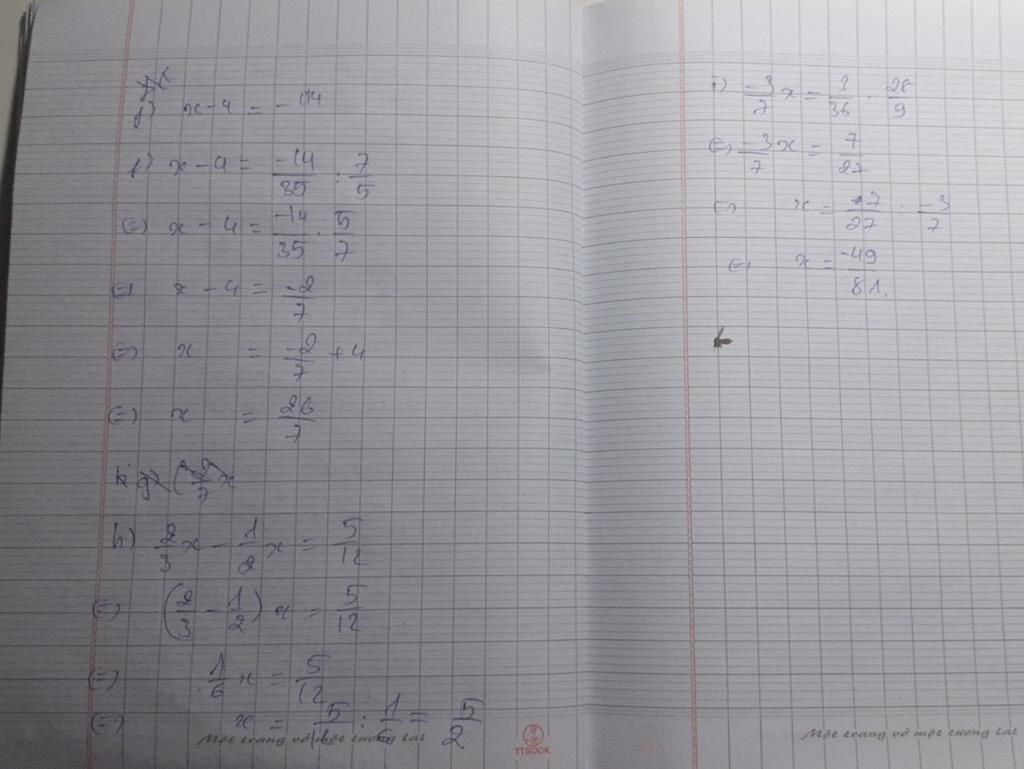 x - 4 = -14
f) x - 4 = -14/35 : 7/5
⇔ x - 4 = -14/35 . 5/7
⇔ x - 4 = -2/7
⇔ x = -2/7 + 4
⇔ x = 26/7
h) 2/3 x - 1/2 x = 5/12
⇔ (2/3 - 1/2) x = 5/12
⇔ 1/6 x = 5/12
⇔ x = 5/12 : 1/6 = 5/2
Một trang vở một chặng dài
TTBOOK
i) -3/7 x = 3/36 . 28/9
⇔ -3/7 x = 7/27
⇔ x = 7/27 : -3/7
⇔ x = -49/81.
Một trang vở một chặng dài